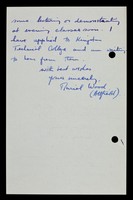 some lecturing or demonstrating
at evening classes soon. I
have applied to Kingston
Technical College and am waiting
to hear from them
with best wishes
yours sincerely,
Muriel Wood